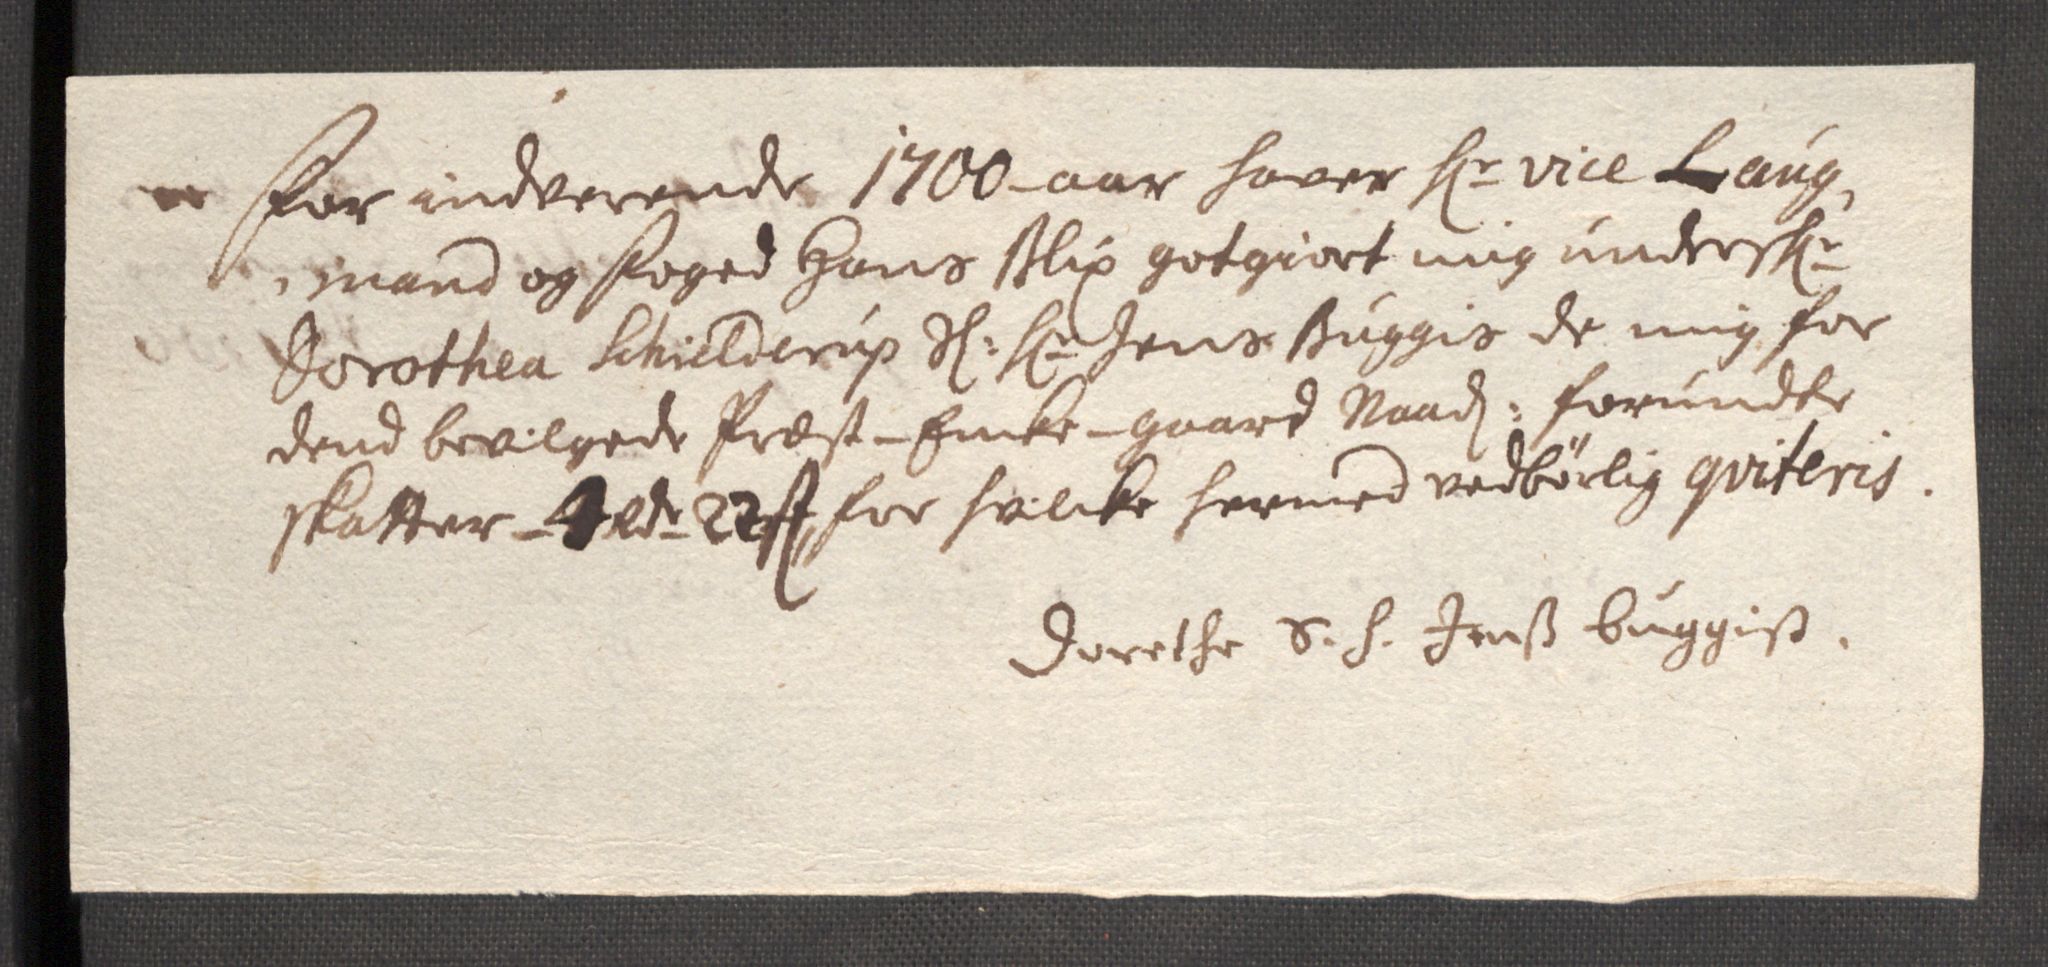 For indverende 1700 aar haver Hr vice Laug,
,mand og foged Hans Blix gotgiort mig undersk:
Dorothea Schielderup Sl: Hr Jens Buggis de mig for
dend bevilgede Præst-Encke-gaard Naad: forundte
skatter - 4 Rdr 22 s, for hvilcke hermed vedbörlig qviteris.
Dorethe S. H. Jenß Buggiß.